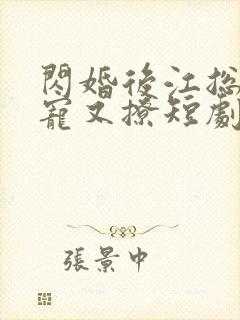 閃婚後江総
寵又撩短劇
張景中